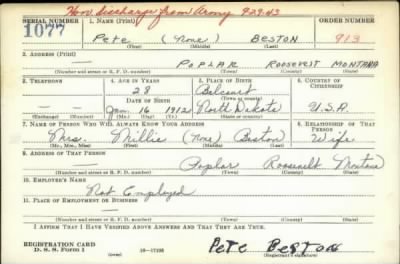 Hon. discharge from Army 9-29-43
SERIAL NUMBER 1. NAME (Print) ORDER NUMBER
1077 Pete (None) BESTON 913
(First) (Middle) (Last)
2. ADDRESS (Print)
POPLAR ROOSEVELT MONTANA
(Number and street or R. F. D. number) (Town) (County) (State)
3. TELEPHONE 4. AGE IN YEARS 5. PLACE OF BIRTH 6. COUNTRY OF CITIZENSHIP
28 Belcourt
DATE OF BIRTH (Town or county)
Jan. 16 1912 North Dakota U.S.A.
(Exchange) (Number) (Mo.) (Day) (Yr.) (State or country)
7. NAME OF PERSON WHO WILL ALWAYS KNOW YOUR ADDRESS 8. RELATIONSHIP OF THAT PERSON
Mrs. Millie (None) Beston Wife
(Mr., Mrs., Miss) (First) (Middle) (Last)
9. ADDRESS OF THAT PERSON
Poplar Roosevelt Montana
(Number and street or R. F. D. number) (Town) (County) (State)
10. EMPLOYER'S NAME
Not Employed
11. PLACE OF EMPLOYMENT OR BUSINESS
(Number and street or R. F. D. number) (Town) (County) (State)
I AFFIRM THAT I HAVE VERIFIED ABOVE ANSWERS AND THAT THEY ARE TRUE.
REGISTRATION CARD
D. S. S. Form 1 (over) Pete BESTON
(Registrant's signature)